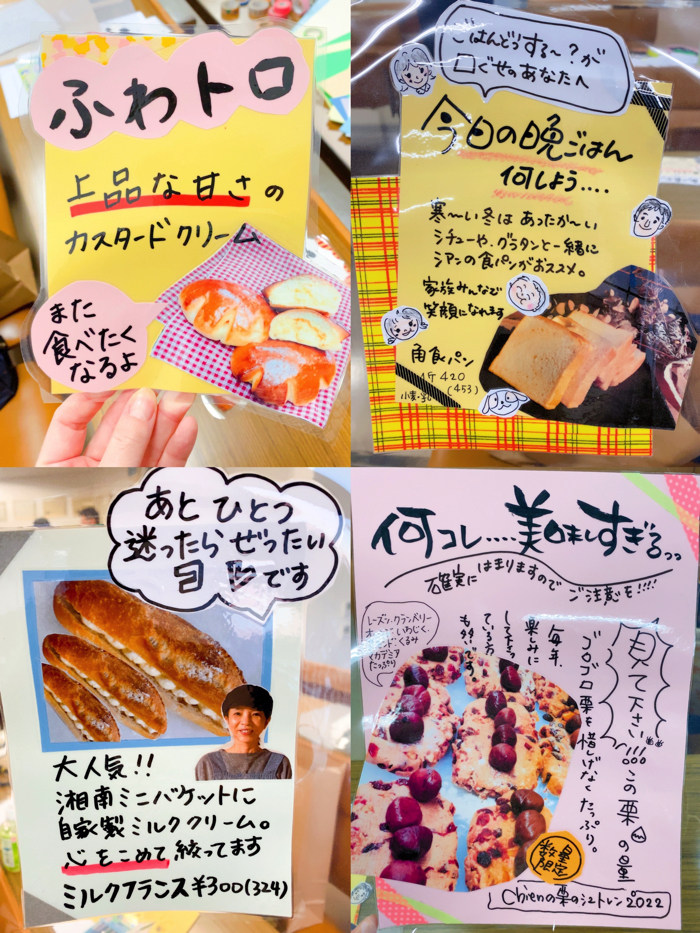 ふわトロ
上品な甘さの
カスタードクリーム
また
食べたく
なるよ
ごはんどうする〜?が
口ぐせのあなたへ
今日の晩ごはん
何しよう....
寒〜い冬は あったか〜い
シチューや、グラタンと一緒に
シアンの食パンがおススメ。
家族みんなで
笑顔になれます
角食パン
1斤 420
(453)
小麦・乳
あとひとつ
迷ったらぜったい
コレです
大人気!!
湘南ミニバケットに
自家製ミルククリーム。
心をこめて絞ってます
ミルクフランス¥300(324)
何コレ....美味しすぎる〜
確実にはまりますのでご注意を!!!!
レーズン、クランベリー
いちじく、
くるみ
マカデミア
たっぷり
見て下さい!!!この栗の量
ゴロゴロ栗を惜しげなくたっぷり。
毎年、
楽しみに
している方
も多いです
数量
限定
Chienの栗のシュトレン2022